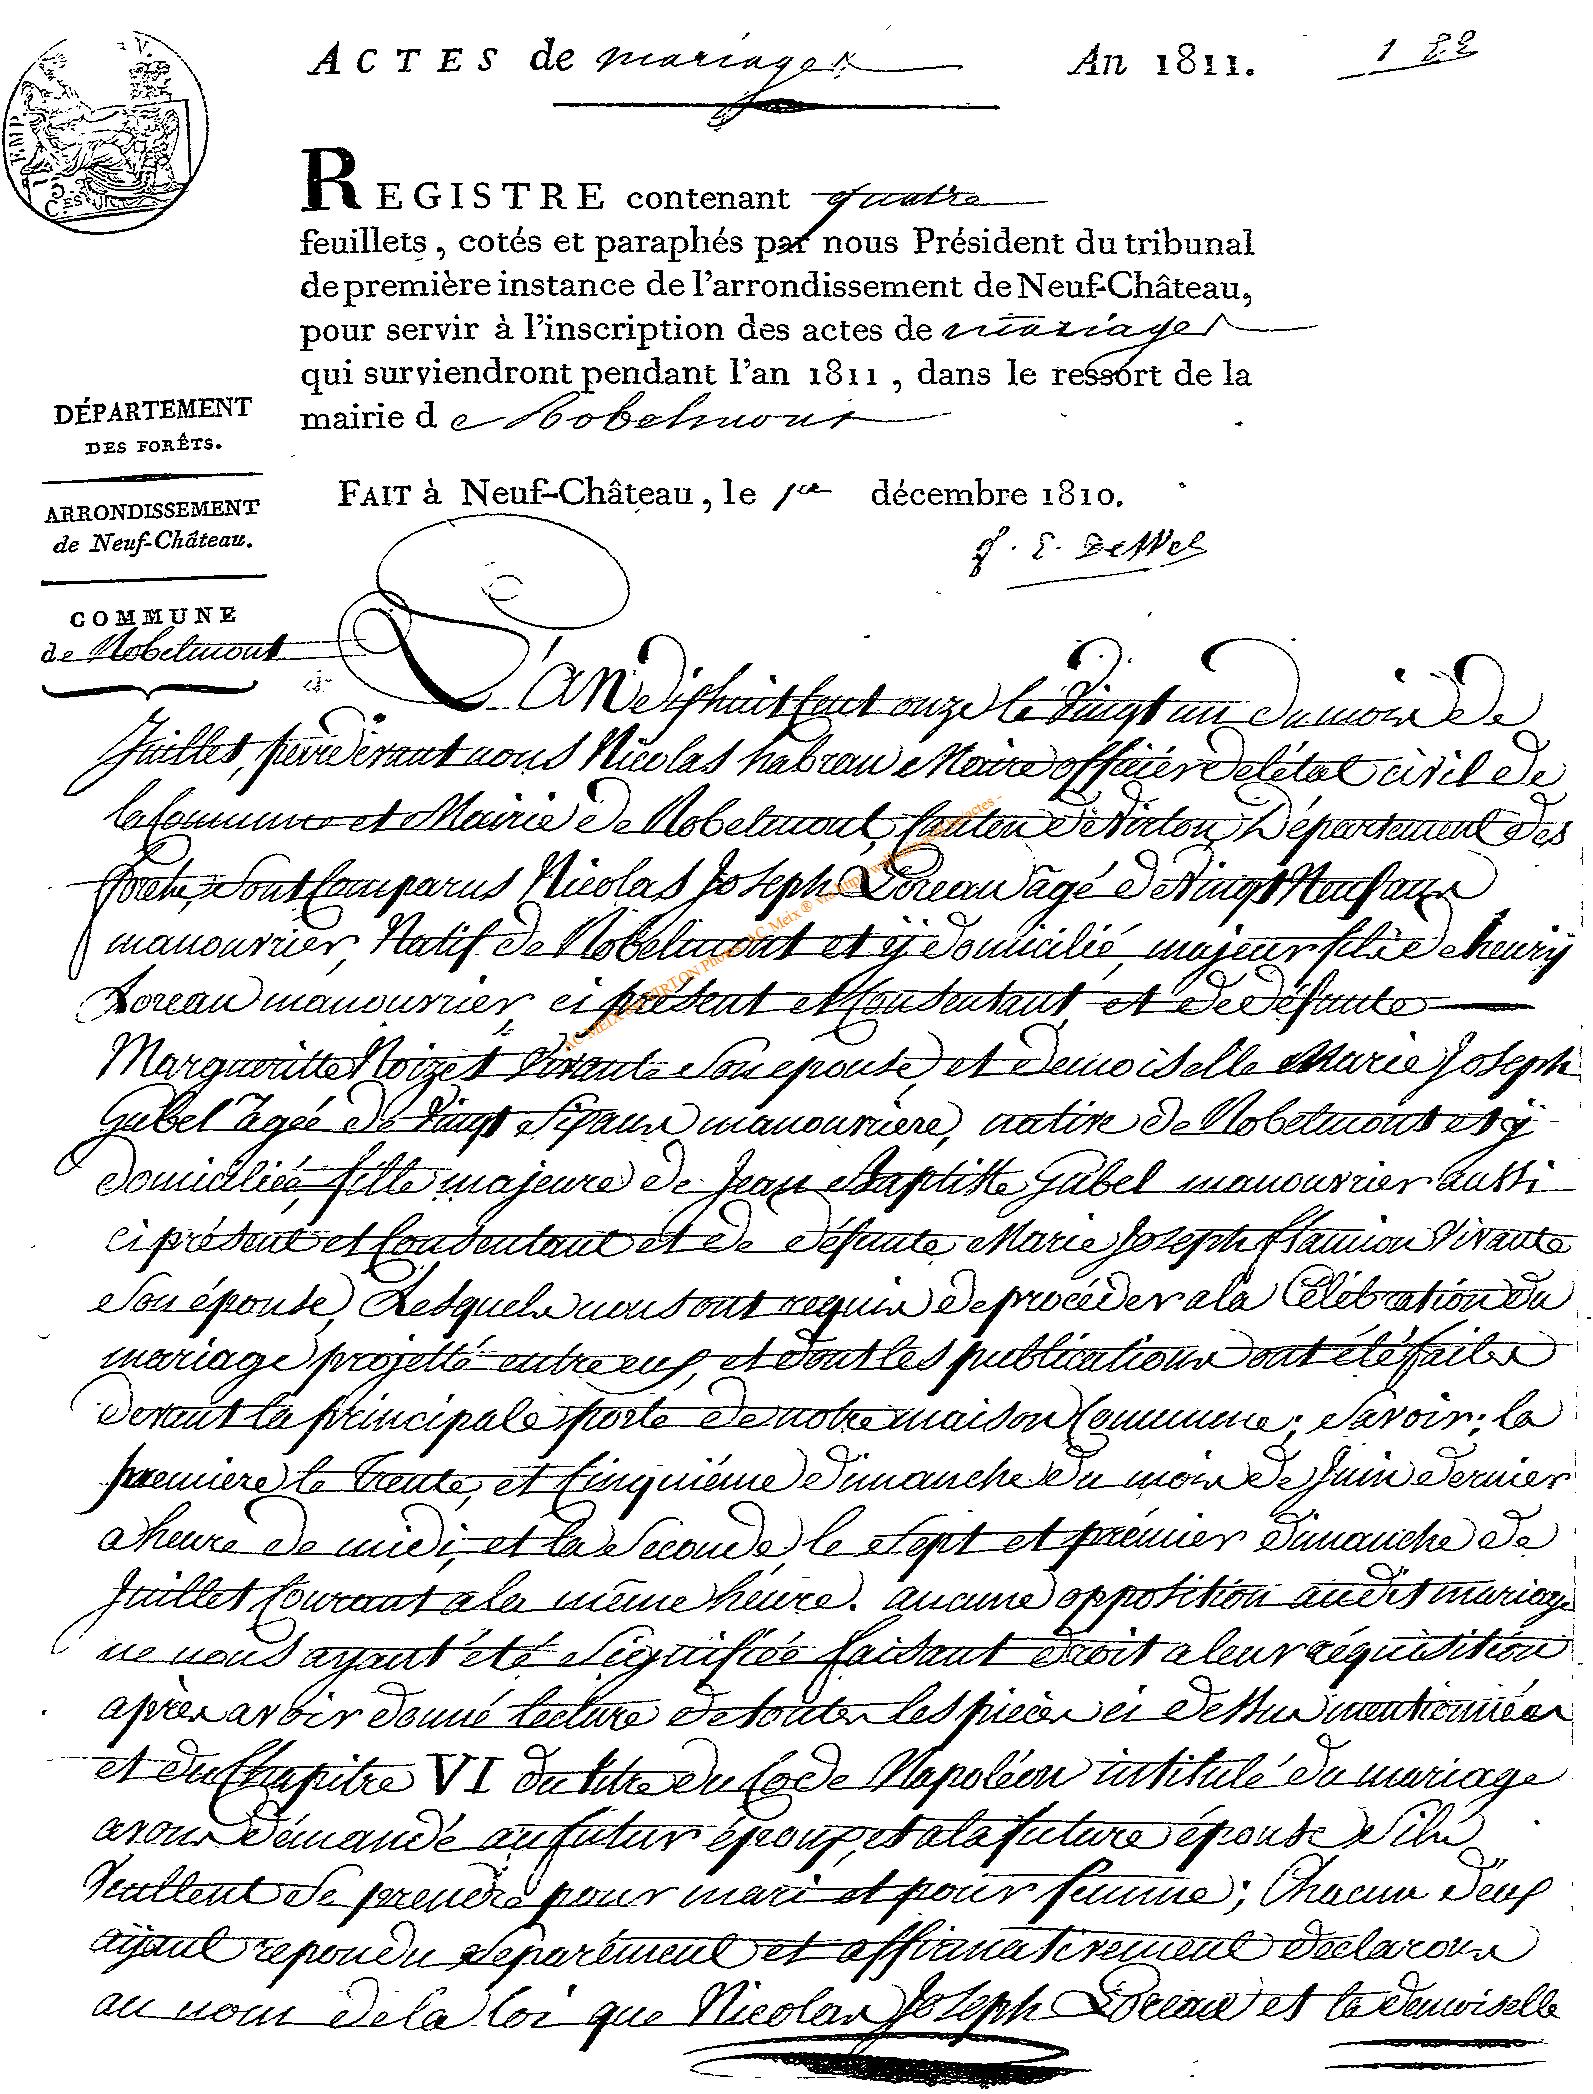 ACTES de mariages An 1811. 1 82
REGISTRE contenant quatre
feuillets, cotés et paraphés par nous Président du tribunal
de première instance de l'arrondissement de Neuf-Château,
pour servir à l'inscription des actes de mariages
qui surviendront pendant l'an 1811, dans le ressort de la
mairie d e Robelmont
FAIT à Neuf-Château, le 1er décembre 1810.
DÉPARTEMENT
DES FORÊTS.
ARRONDISSEMENT
de Neuf-Château.
COMMUNE
de Robelmont
L'an dixhuit Cent onze le Vingt un du mois de
Juillet, perdevant nous Nicolas habran Maire officiér de l'état civil de
la Commune et Mairie de Robelmont, Canton de Virton, Département des
forêts, sont Comparus Nicolas Joseph Loreau agé de Vingt Neuf ans
manouvrier, Natif de Robelmont et ÿ domicilié, majeur fils de henrÿ
Loreau manouvrier, ci présent et Consentant, et de défunte
Margueritte Noizet Vivante Son epouse, et demoiselle Marie Joseph
Gubel agée de Vingt Six ans manouvriere, native de Robelmont et ÿ
domiciliée, fille majeure de Jean Baptiste Gubel manouvrier aussi
ci présent et Consentant et de défunte Marie Joseph flamion Vivante
Son épouse, Lesquels nous ont requis de procéder a la Célébration du
mariage projetté entre eux, et dont les publications ont été faites
devant la principale porte de notre maison Commune; Savoir; la
premiere le Trente, et Cinquiéme dimanche du mois de Juin dernier
a heure de midi, et la Seconde, le Sept et prémier dimanche de
Juillet Courant a la même héure. aucune opposition audit mariage
ne nous ayant été Signifiée faisant droit a leur réquisition
après avoir donné lecture de toutes les pièces ci dessus mentionnées
et du Chapitre VI du titre du Code Napoléon intitulé du mariage
avons démandé au futur époux, et a la future épouse S'ils
Veullent se prendre pour mari et pour femme; Chacun d'eux
aÿant repondu Separément et affirmativement declarons
au nom de la loi que Nicolas Joseph Loreau et la demoiselle